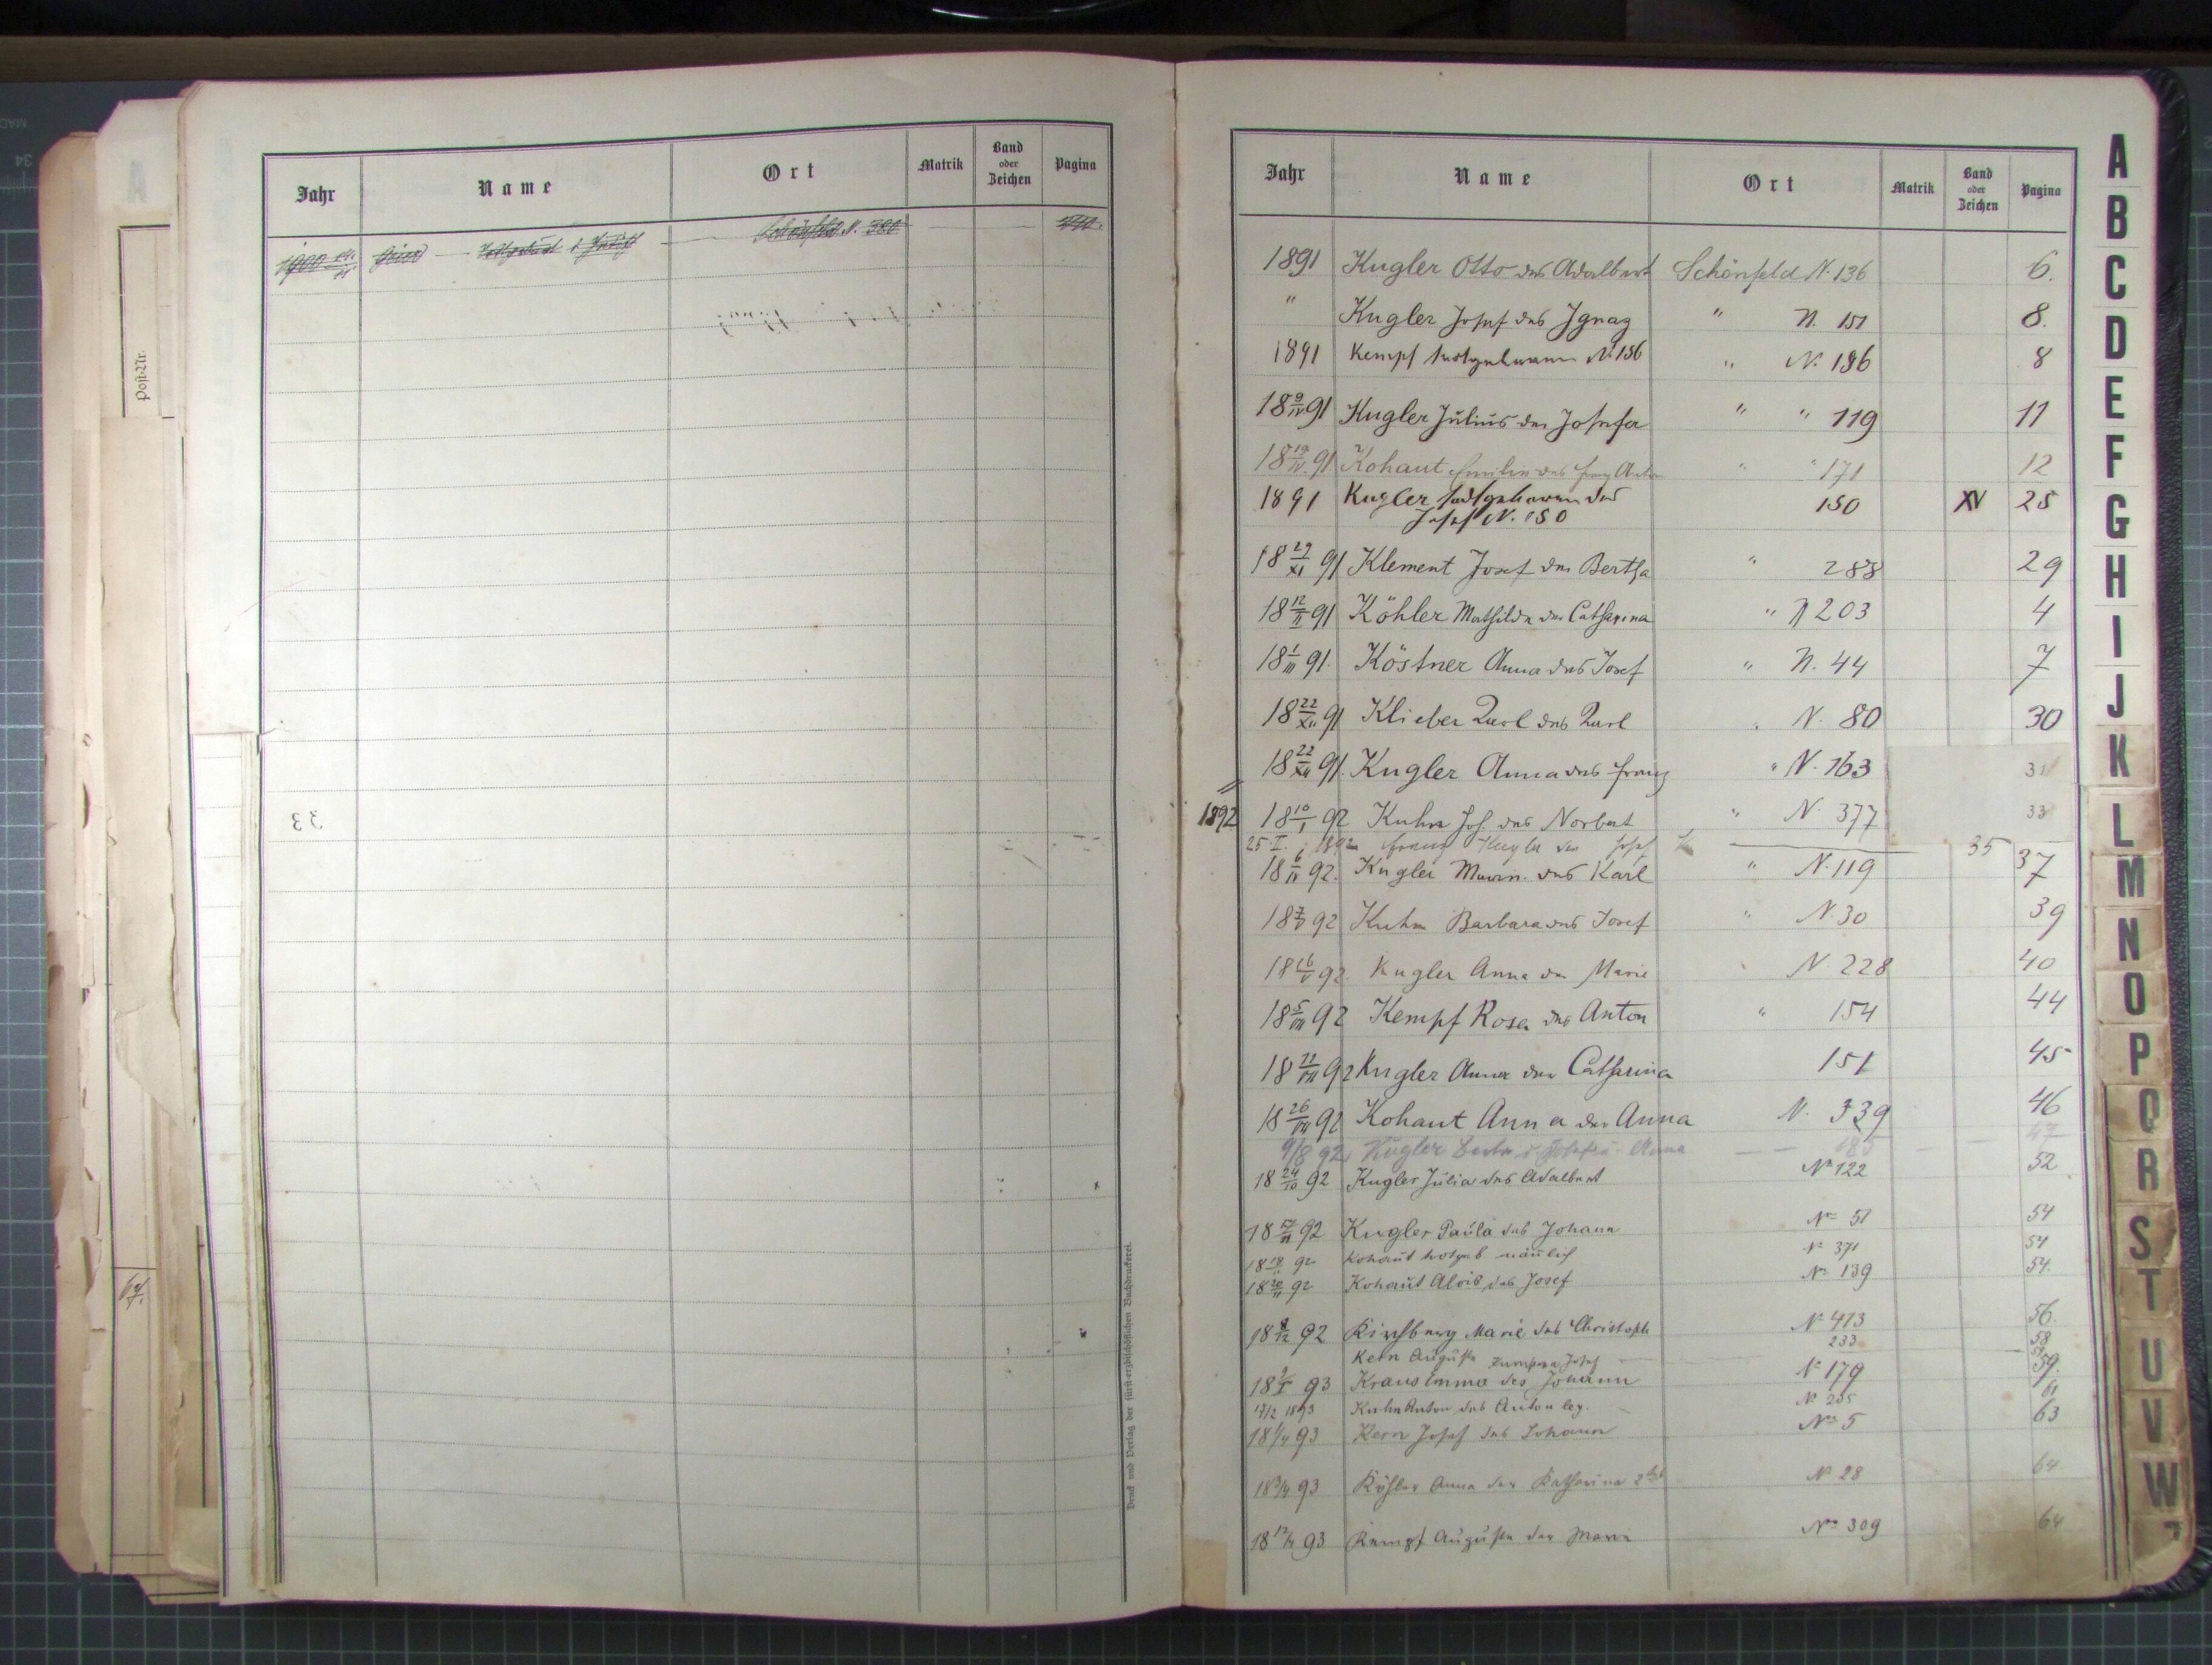 Jahr Name Ort Matrik Band oder Zeichen Pagina
1900 Schönfeld N. 380
Post-Nr.
33
Druck und Verlag der fürst-erzbischöflichen Buchdruckerei.
Jahr Name Ort Matrik Band oder Zeichen Pagina
1891 Kugler Otto des Adalbert Schönfeld N. 136 6.
" Kugler Josef des Ignaz " N. 151 8.
1891 Kempf todtgeboren N. 186 " N. 186 8
18 9/IV 91 Kugler Julius der Josefa " " 119 11
18 19/IV 91 Kohaut Emilie des Anton " " 171 12
1891 Kugler todtgeboren des 150 XV 25
Josef N. 150
18 29/XI 91 Klement Josef der Bertha " 288 29
18 12/II 91 Köhler Mathilde der Catharina " N 203 4
18 1/III 91. Köstner Anna des Josef " N. 44 7
18 22/XII 91 Klieber Karl des Karl " N. 80 30
18 22/XII 91. Kugler Anna des Franz " N. 163 31
1892 18 10/I 92 Kuhn Jos. des Norbert " N. 377 33
25 II. 1892 Franz Kugler des Josef 35
18 6/IV 92. Kugler Marie des Karl " N. 119 37
18 7/V 92 Kuhn Barbara des Josef " N. 30 39
18 16/V 92 Kugler Anna der Marie " N 228 40
18 5/VII 92 Kempf Rosa des Anton " 154 44
18 21/VII 92 Kugler Anna der Catharina 151 45
18 26/VII 92 Kohaut Anna der Anna N. 339 46
9/8 92 Kugler Berta Anna 185 47
18 24/10 92 Kugler Julia des Adalbert No 122 52
18 17/11 92 Kugler Paula des Johann No 51 54
18 18/11 92 Kohaut todgeb. männlich No 371 54
18 20/11 92 Kohaut Alois des Josef No 139 54.
18 8/12 92 Kirschberg Marie des Christoph No 413 56.
Kern Auguste Josef 233 58
18 9/I 93 Kraus Emma des Johann No 179 59.
17/2 1893 Kuhn Anton des Anton leg. No 205 61
18 1/4 93 Kern Josef des Johann No 5 63
93 Köhler Anna der Katharina No 28 64
18 12/4 93 Kempf Auguste der Marie No 309 64
A
B
C
D
E
F
G
H
I
J
K
L
M
N
O
P
Q
R
S
T
U
V
W